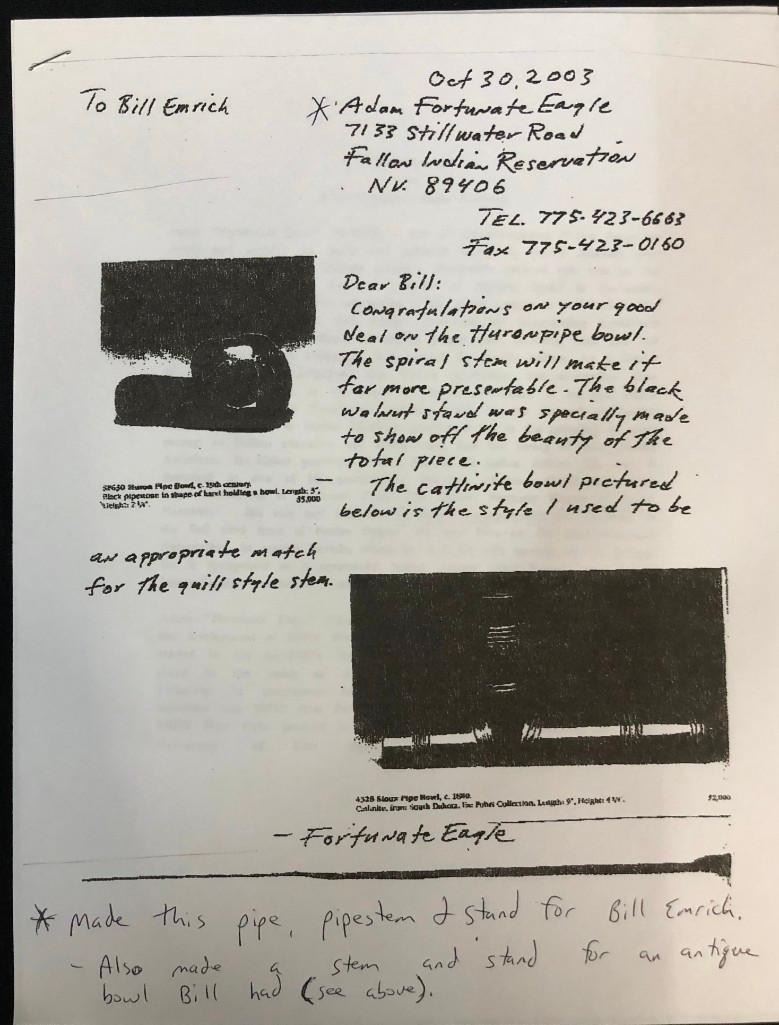 Oct 30, 2003
To Bill Emrich
* Adam Fortunate Eagle
7133 Stillwater Road
Fallon Indian Reservation
NV. 89406
TEL. 775-423-6663
Fax 775-423-0160
Dear Bill:
Congratulations on your good
deal on the Huronpipe bowl.
The spiral stem will make it
far more presentable. The black
walnut stand was specially made
to show off the beauty of the
total piece.
The catlinite bowl pictured
below is the style I used to be
an appropriate match
for the quill style stem.
Huron Pipe Bowl, c. 19th century.
Black pipestone in shape of hand holding a bowl. Length: 5",
Height: 2 ¼". $5,000
4328 Sioux Pipe Bowl, c. 1880.
Catlinite, from South Dakota. Ex: Pohrt Collection. Length: 9", Height: 4 ¼". $2,000
- Fortunate Eagle
* Made this pipe, pipestem & stand for Bill Emrich.
- Also made a stem and stand for an antique
bowl Bill had (see above).